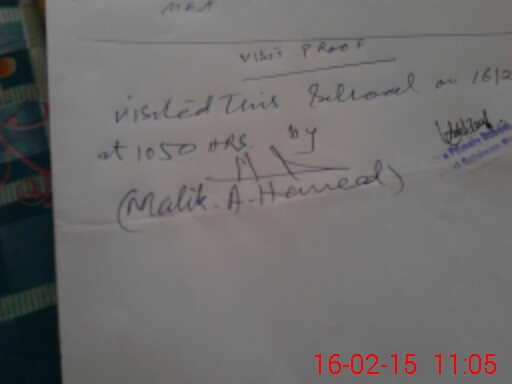 MEA
VISIT PROOF
Visited This School on 16/2
at 1050 HRS by
(Malik. A. Hameed)
16-02-15 11:05